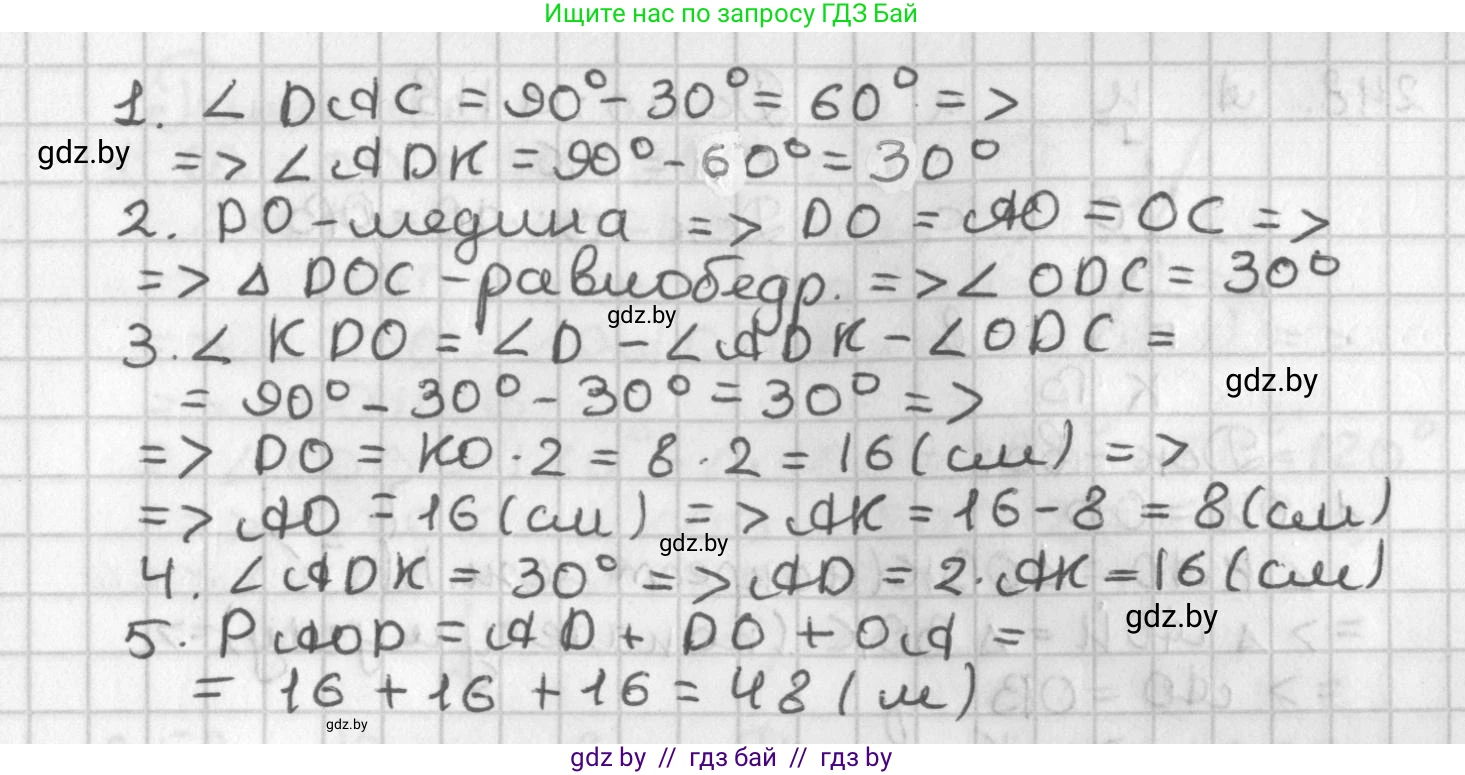 Ищите нас по запросу ГДЗ Бай
1. ∠ DAC = 90° - 30° = 60° = >
gdz.by
= > ∠ ADK = 90° - 60° = 30°
2. DO - медиана = > DO = AO = OC = >
= > Δ DOC - равнобедр. = > ∠ ODC = 30°
gdz.by
3. ∠ KDO = ∠D - ∠ADK - ∠ODC =
gdz.by
= 90° - 30° - 30° = 30° = >
= > DO = KO · 2 = 8 · 2 = 16 (см) = >
= > AO = 16 (см) = > AK = 16 - 8 = 8 (см)
gdz.by
4. ∠ADK = 30° = > AD = 2 · AK = 16 (см)
gdz.by
5. PAOD = AD + DO + OA =
= 16 + 16 + 16 = 48 (м)
gdz.by
gdz by // гдз бай // гдз by